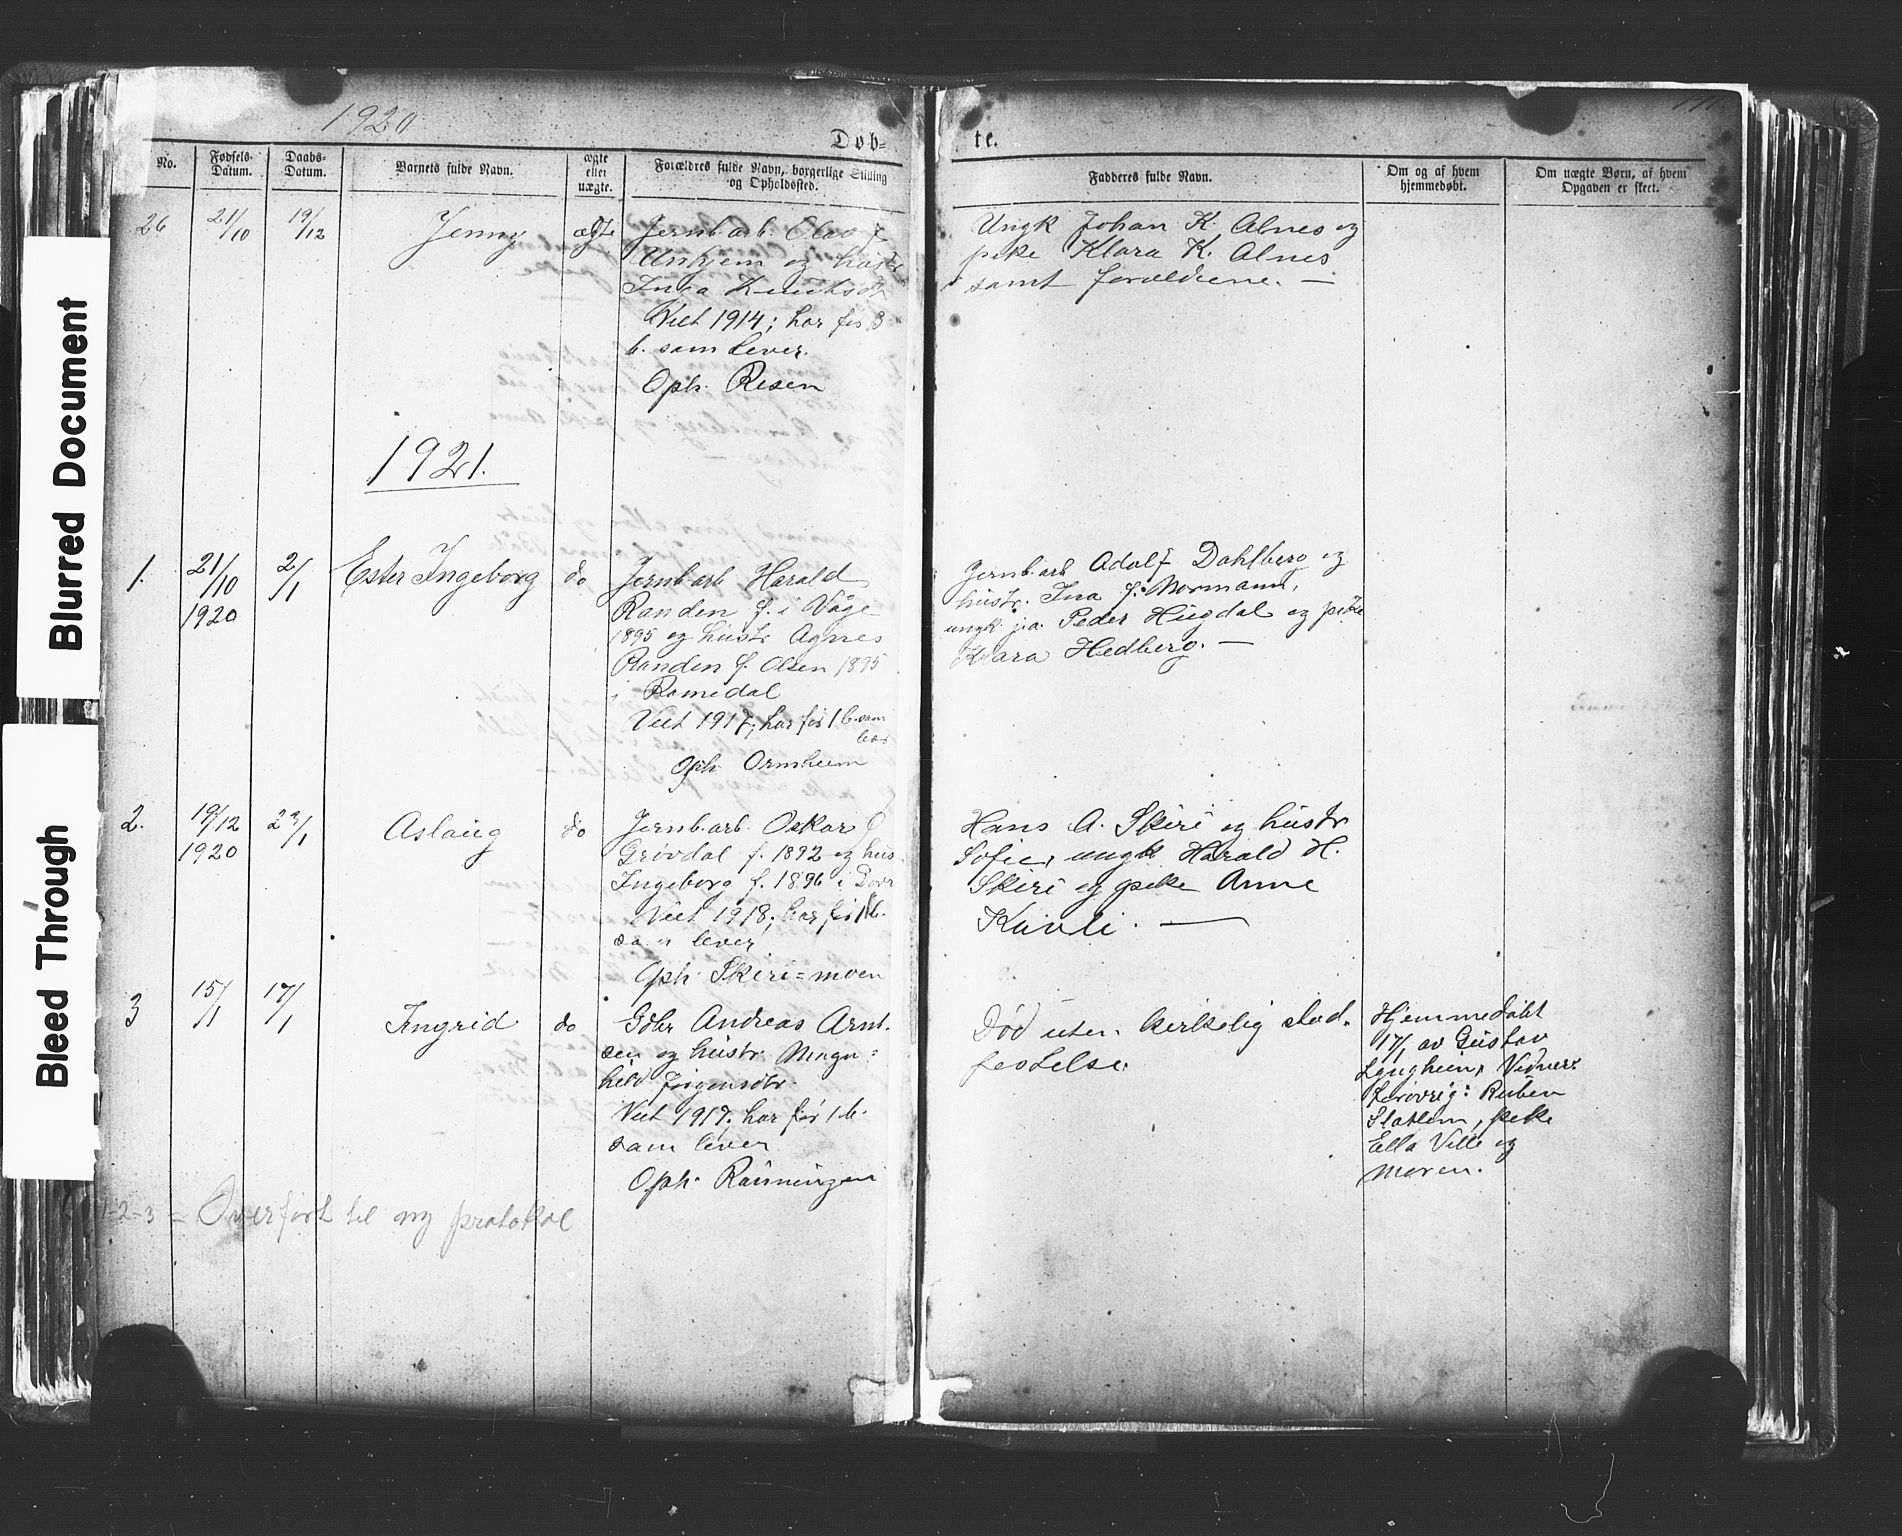 Blurred Document
Bleed Through
1920
Døb=
te.
No.
Fødsels-Datum.
Daabs-Datum.
Barnets fulde Navn.
ægte eller uægte.
Forældres fulde Navn, borgerlige Stilling og Opholdssted.
Fadderes fulde Navn.
Om og af hvem hjemmedøbt.
Om uægte Børn, af hvem Opgaven er skeet.
26 21/10 19/12 Jenny ægte
Jernb.arb. Olav
og hustr
Inga
Viet 1914; har før 3
b. som lever.
Oph. Resen
Ungk Johan K. Alnes og
pike Klara K. Alnes
samt forældrene. —
1921.
1. 21/10 1920 2/1 Ester Ingeborg do
Jernb.arb Harald
Randen f. i Våge
1895 og hustr Agnes
Randen f. Olsen 1895
i Romedal
Viet 1917; har før 1 b. som
lever
Oph Ormheim
Jernb.arb Adolf Dahlberg og
hustr. Ina f. Normann,
ungk. Peder Hugdal og pike
Klara Hedberg. —
2. 19/12 1920 23/1 Aslaug do
Jernb.arb. Oskar
Grøvdal f. 1892 og hus
Ingeborg f. 1896 i
Viet 1918; har før 1 b.
som lever
Oph. Skiri=moen
Hans A. Skiri og hustr
Sofie, ungk Harald H.
Skiri og pike Anne
Kavli. —
3 15/1 17/1 Ingrid do
Gbr Andreas Arnt-
sen og hustr. Magn-
hild Jörgensdtr.
Viet 1917, har før 1 b.
som lever
Oph. Rönningen
Død uten kirkelig stad-
festelse.
Hjemmedøbt
17/1 av Gustav
Lyngheim,
Ruben
pike
Ella Ville og
moren.
1-2-3 = Overført til ny protokol